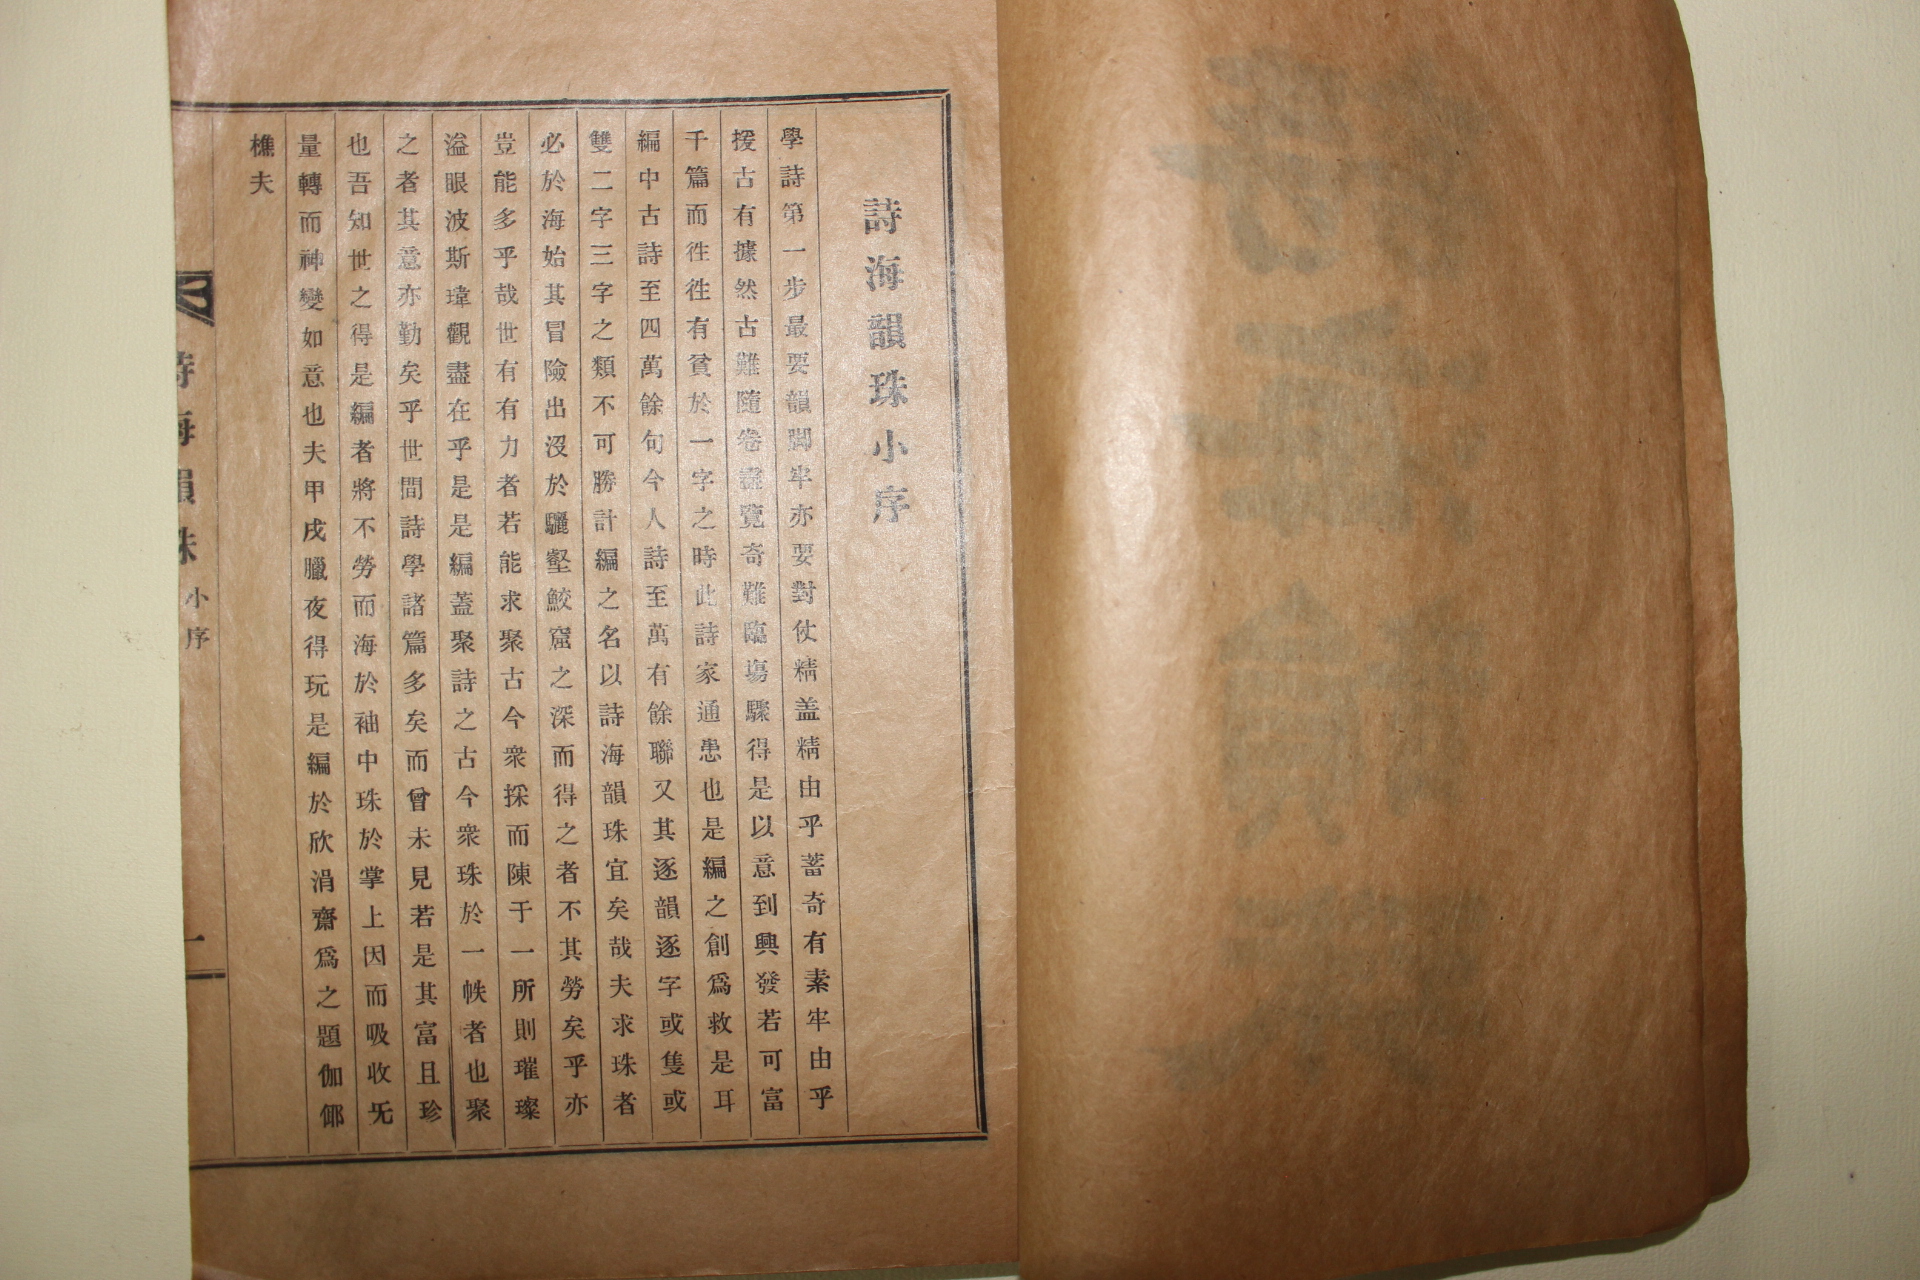 詩海韻珠小序
學詩第一步最要韻脚牢亦要對仗精盖精由乎蓄奇有素牢由乎
援古有據然古難隨卷盡覽奇難臨塲驟得是以意到興發若可富
千篇而徃徃有貧於一字之時此詩家通患也是編之創爲救是耳
編中古詩至四萬餘句今人詩至萬有餘聯又其逐韻逐字或隻或
雙二字三字之類不可勝計編之名以詩海韻珠宜矣哉夫求珠者
必於海始其冒險出沒於驪壑鮫窟之深而得之者不其勞矣乎亦
豈能多乎哉世有有力者若能求聚古今衆採而陳于一所則璀璨
溢眼波斯瑋觀盡在乎是是編蓋聚詩之古今衆珠於一帙者也聚
之者其意亦勤矣乎世間詩學諸篇多矣而曾未見若是其富且珍
也吾知世之得是編者將不勞而海於袖中珠於掌上因而吸收旡
量轉而神變如意也夫甲戌臘夜得玩是編於欣涓齋爲之題伽倻
樵夫
詩海韻珠 小序 一